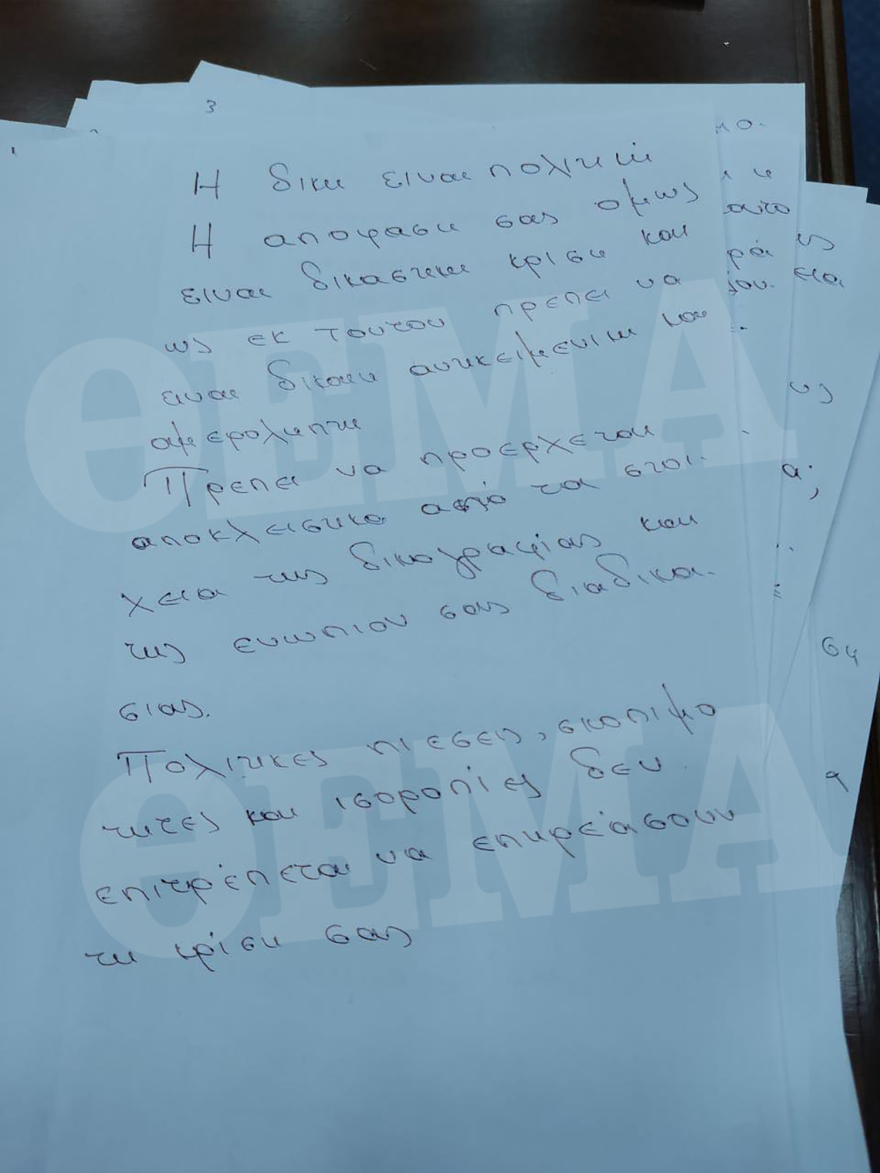 3
Η δικη ειναι πολιτικη
Η αποφαση σας ομως
ειναι δικαστικη κριση και
ως εκ τουτου πρεπει να
ειναι δικαιη αντικειμενικη και
αμεροληπτη
Πρεπει να προερχεται
αποκλειστικα από τα στοι-
χεια της δικογραφίας και
της ενωπιον σας διαδικα-
σιας.
Πολιτικες πιεσεις, σκοπιμο
τητες και ισορροπίες δεν
επιτρέπεται να επηρεάσουν
τη κρίση σας
ΘΕΜΑ
ΘΕΜΑ